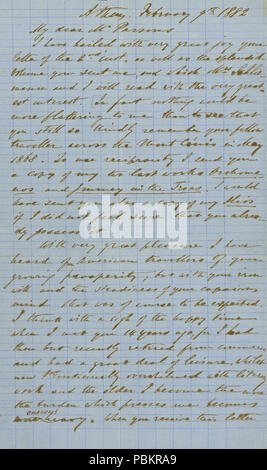 Athens, February 9th 1882
My dear Mr Parsons
I have hailed with very great joy your
letter of the 2nd inst, as well as the splendid
volume you sent me, and which Mrs Schlie-
mann and I will read with the very great-
est interest. In fact nothing could be
more flattering to me than to see that
you still so kindly remember your fellow
traveller across the Mont Cenis in May
1868. To use reciprocity I send you
a copy of my two last works Orchome-
nos and Journey in the Troas. I would
have sent you also a copy of my Ilios
if I did not feel sure that you alrea-
dy possess it.
With very great pleasure I have
heard of American travellers of your
growing prosperity; but with your iron
will and the steadiness of your capacious
mind that was of course to be expected.
I think with a sigh of the happy time
when I met you 14 years ago, for I had
then but recently retired from commerce
and had a great deal of leisure, whilst
now I continually overwhelmed with literary
work and the older I become the more
the burden which presses me becomes
onerous
When you receive this letter
alamy
Image ID: PBKRA9
www.alamy.com